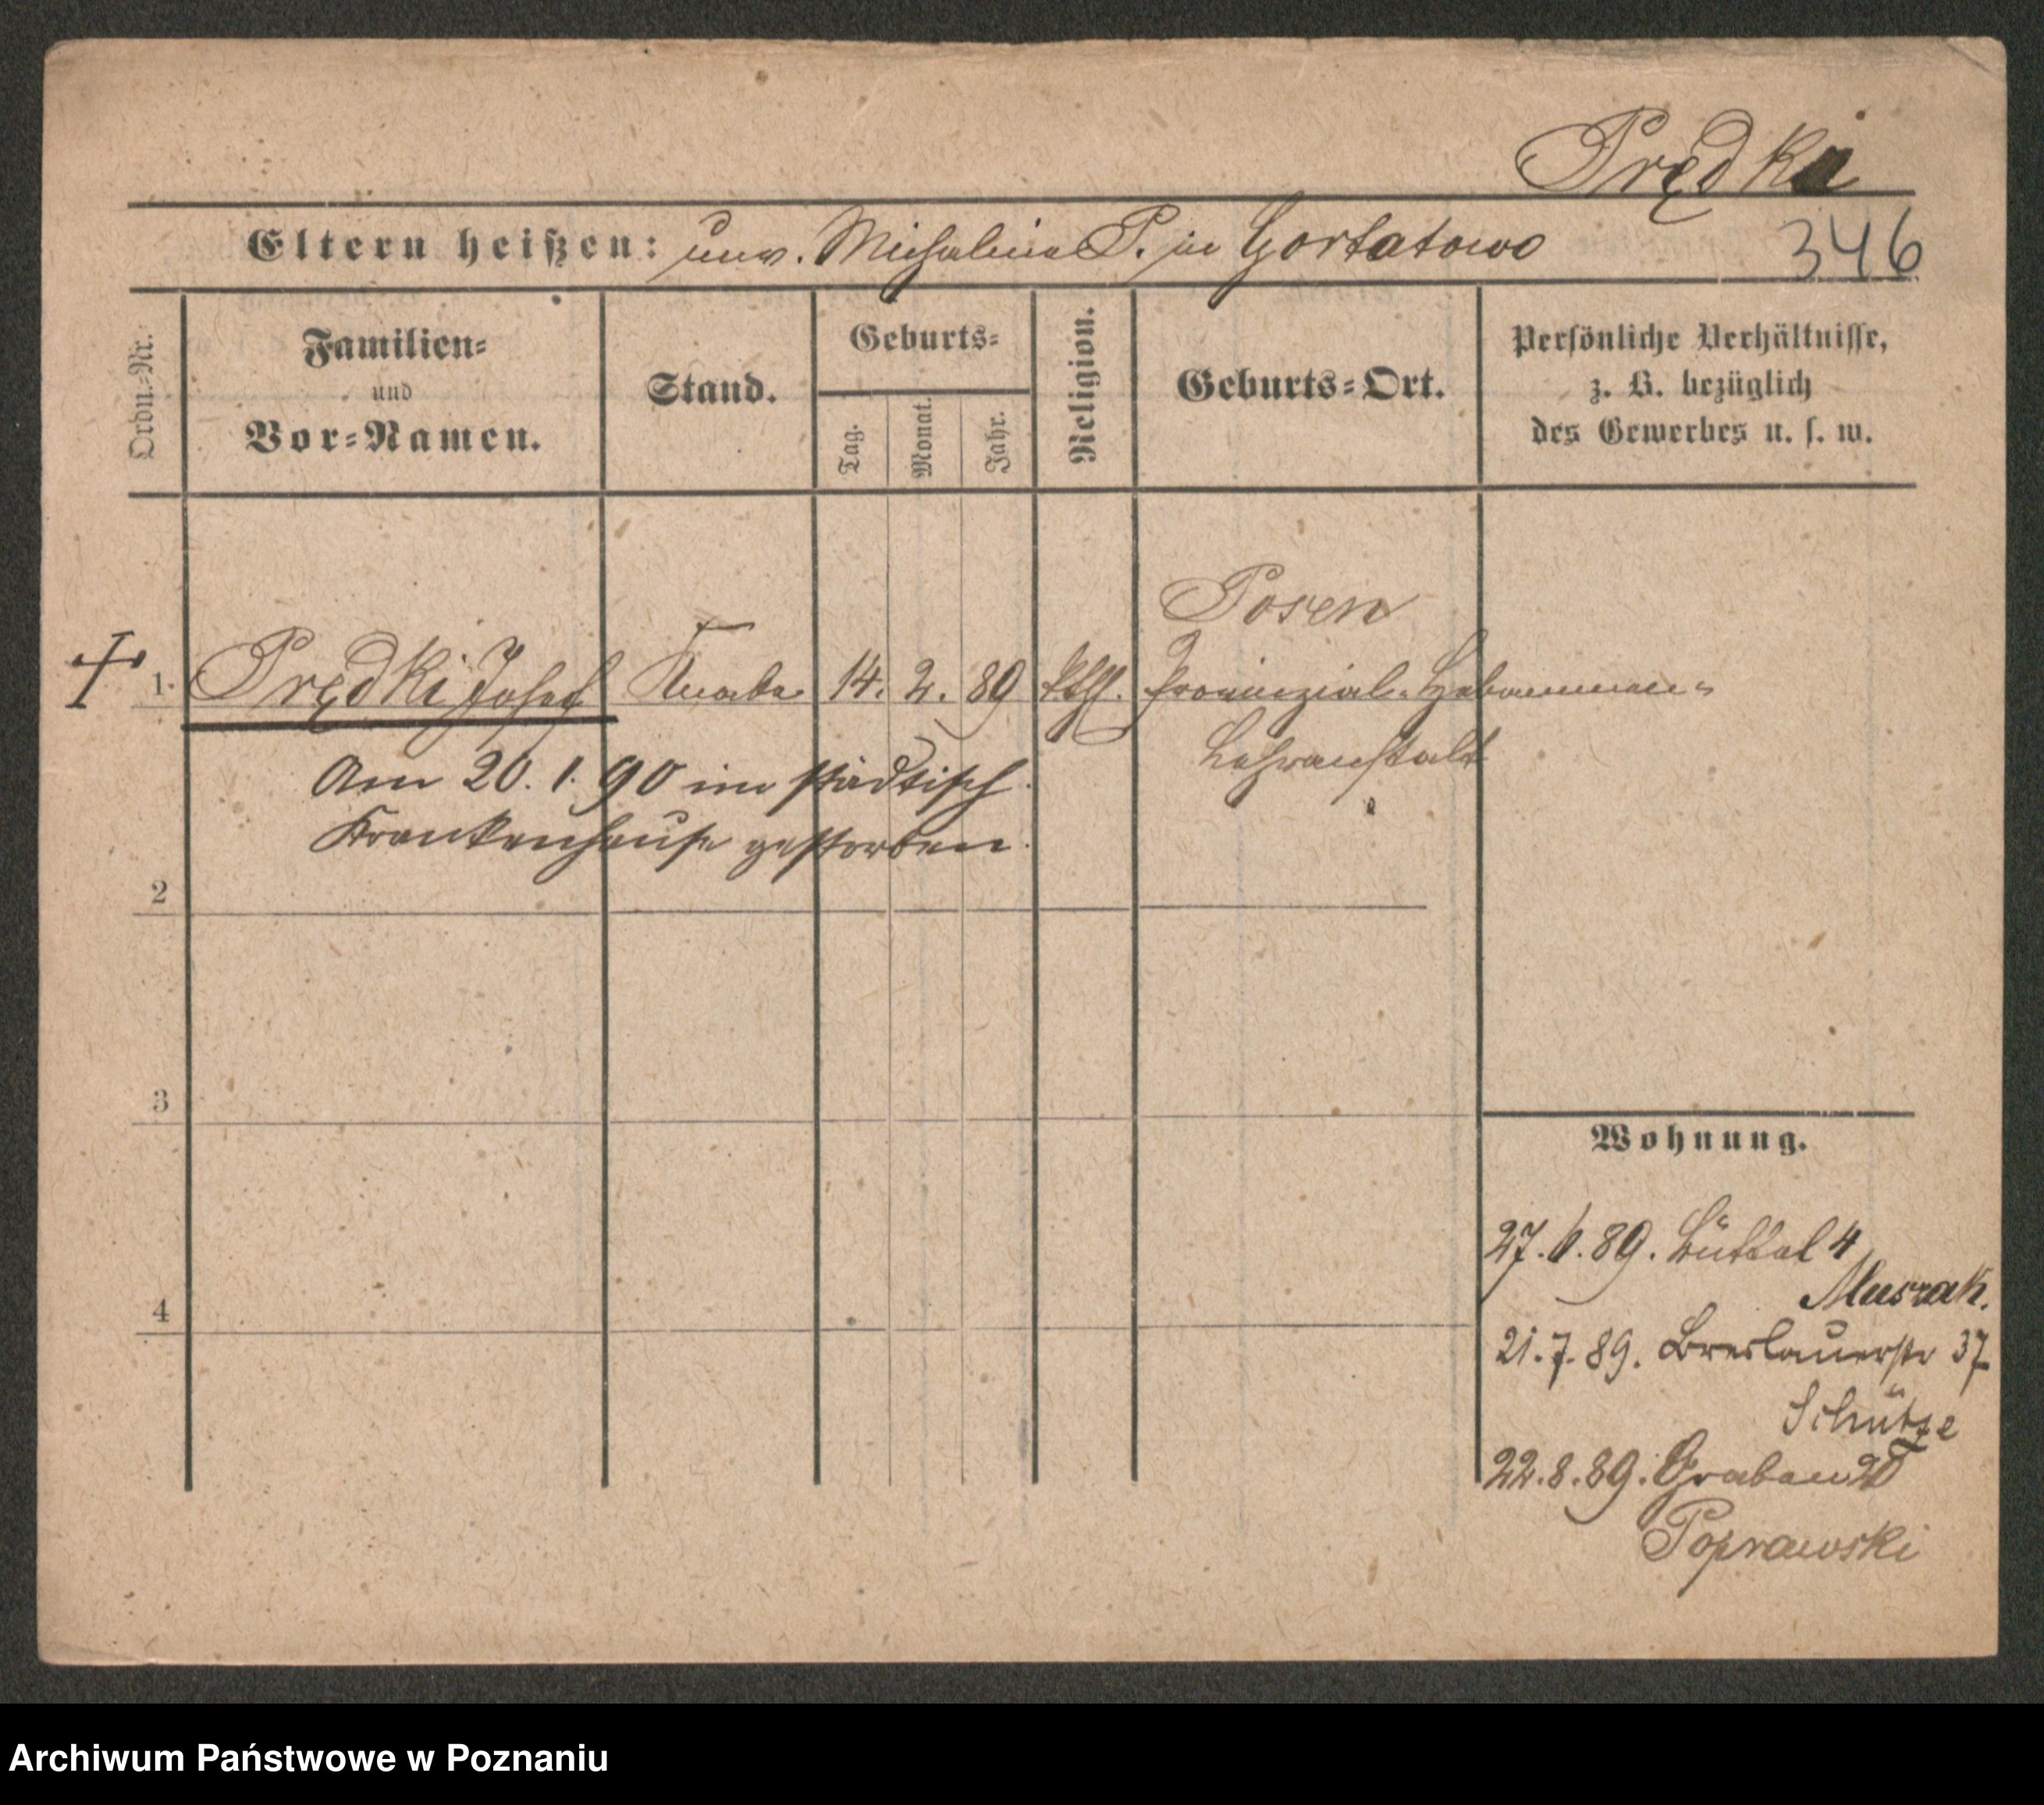 Prędka
Eltern heißen: unv. Michalina P. in Gortatowo
346
Ordn.-Nr.
Familien-
und
Vor-Namen.
Stand.
Geburts-
Tag. Monat. Jahr.
Religion.
Geburts-Ort.
Persönliche Verhältnisse,
z. B. bezüglich
des Gewerbes u. s. w.
Posen
1. Prędki Josef Knabe 14. 2. 89 kth. Provinzial-Hebammen-
Lehranstalt
Am 20.1.90 im städtisch.
Krankenhause gestorben.
2
3
4
Wohnung.
27.6.89. 4
21.7.89. Breslauerstr 37
Schütze
22.8.89. Graben
Poprawski
Archiwum Państwowe w Poznaniu